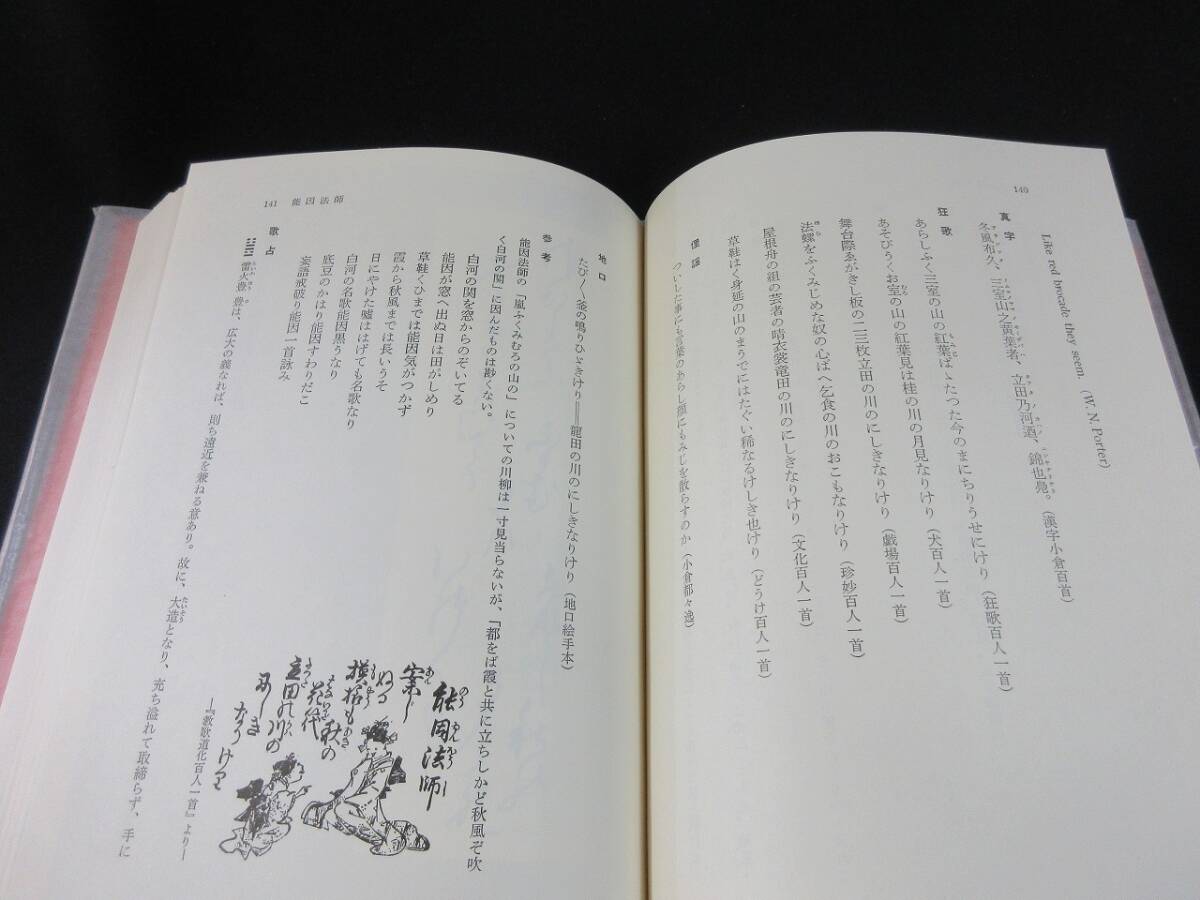 140
Like red brocade they seem. (W. N. Porter)
真字
冬風布久、三室山之黄葉者、立田乃河酒、錦也鳧。（漢字小倉百首）
狂歌
あらしふく三室の山の紅葉ばゝたつた今のまにちりうせにけり（狂歌百人一首）
あそびうくお室の山の紅葉見は桂の川の月見なりけり（犬百人一首）
舞台際ゑがきし板の二三枚立田の川のにしきなりけり（戯場百人一首）
法螺をふくみじめな奴の心ばへ乞食の川のおこもなりけり（珍妙百人一首）
屋根舟の組の芸者の晴衣裳竜田の川のにしきなりけり（文化百人一首）
草鞋はく身延の山のまうでにはたぐい稀なるけしき也けり（どうけ百人一首）
俚謡
ついした事にも言葉のあらし顔にもみじを散らすのか（小倉都々逸）
能因法師
141
地口
たび〳〵釜の鳴りひゞきけり――龍田の川のにしきなりけり（地口絵手本）
参考
能因法師の「嵐ふくみむろの山の」についての川柳は一寸見当らないが、「都をば霞と共に立ちしかど秋風ぞ吹
く白河の関」に因んだものは尠くない。
白河の関を窓からのぞいてる
能因が窓へ出ぬ日は田がしめり
草鞋くひまでは能因気がつかず
霞から秋風までは長いうそ
日にやけた嘘ははげても名歌なり
白河の名歌能因黒うなり
底豆のかはり能因すわりだこ
妄語戒破り能因一首詠み
能因法師
案じ
ぬる
模様もあき
花代 秋の
立田の川の
にしき
なりけり
―『教歌道化百人一首』より―
歌占
雷火豊 豊は、広大の義なれば、則ち遠近を兼ねる意あり。故に、大造となり、充ち溢れて取締らず、手に